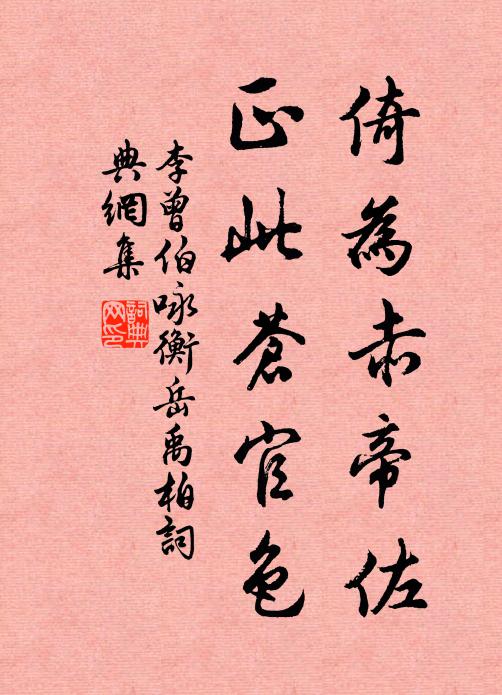 倚為赤帝佐
正此蒼官色
李曾伯咏衡岳禹柏詞
典網集
詞典網印